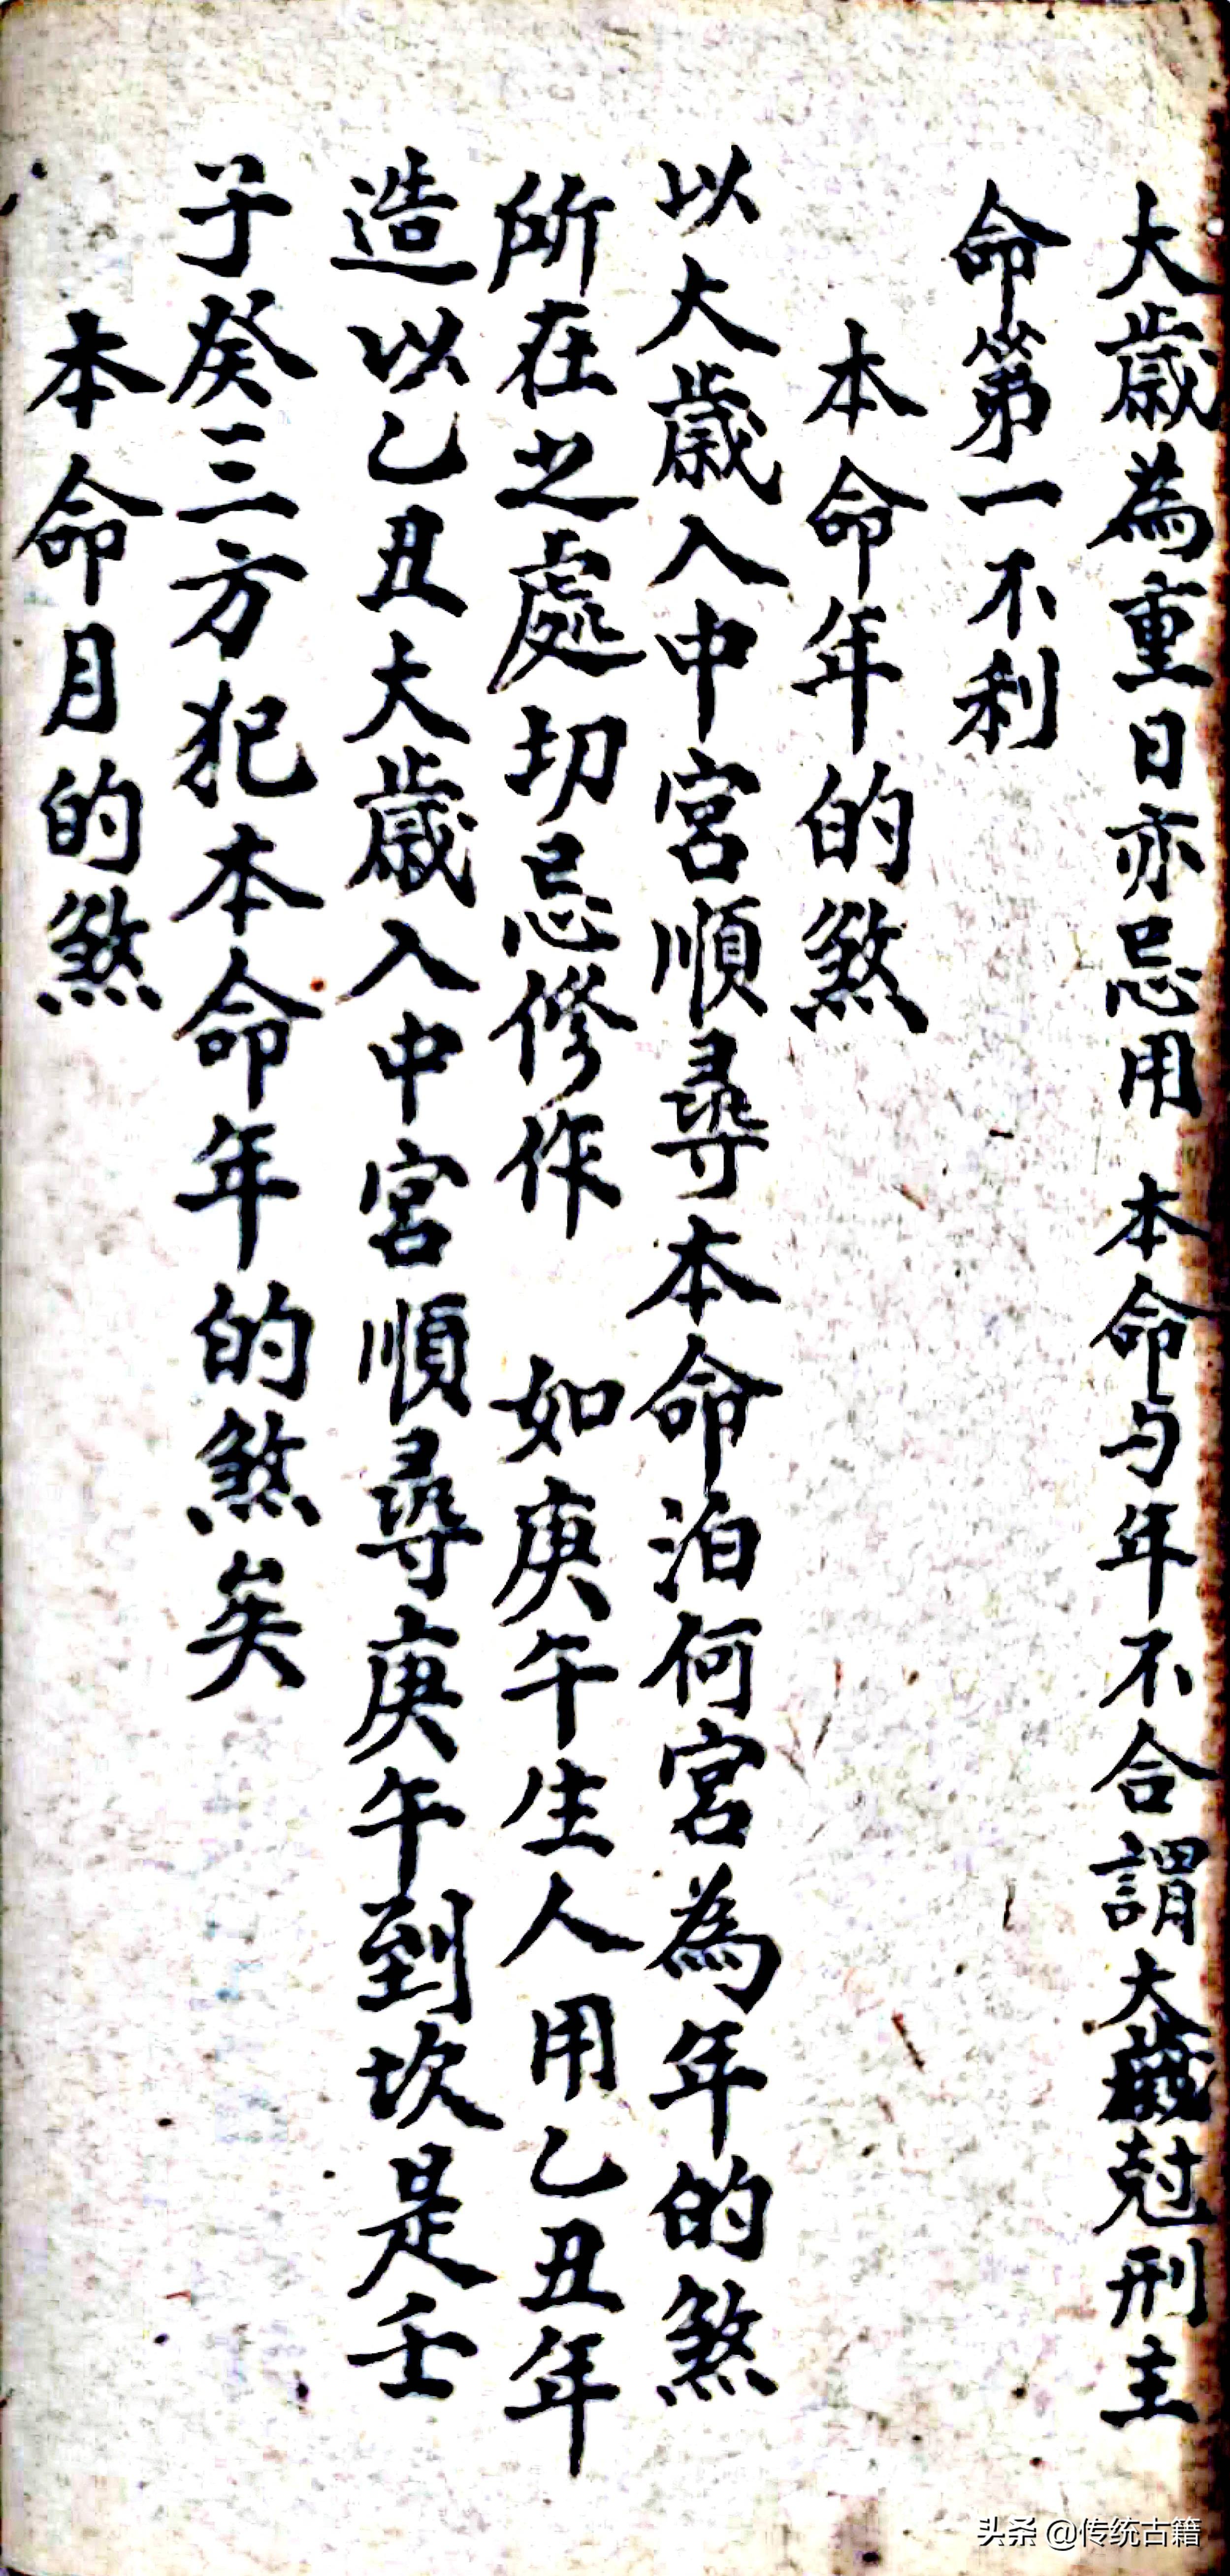 大歲為重日亦忌用 本命与年不合謂大歲尅刑主
命第一不利
本命年的煞
以大歲入中宮順尋本命泊何宮為年的煞
所在之處切忌修作 如庚午生人用乙丑年
造以乙丑大歲入中宮順尋庚午到坎是壬
子癸三方犯本命年的煞矣
本命月的煞
头条 @传统古籍